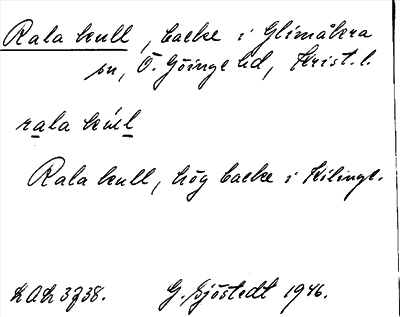 Rala kull, backe i Glimåkra
sn, Ö. Göinge hd, Krist. l.
rala kúll
Rala kull, hög backe i Kilinge.
LAL 3738. G. Sjöstedt 1946.